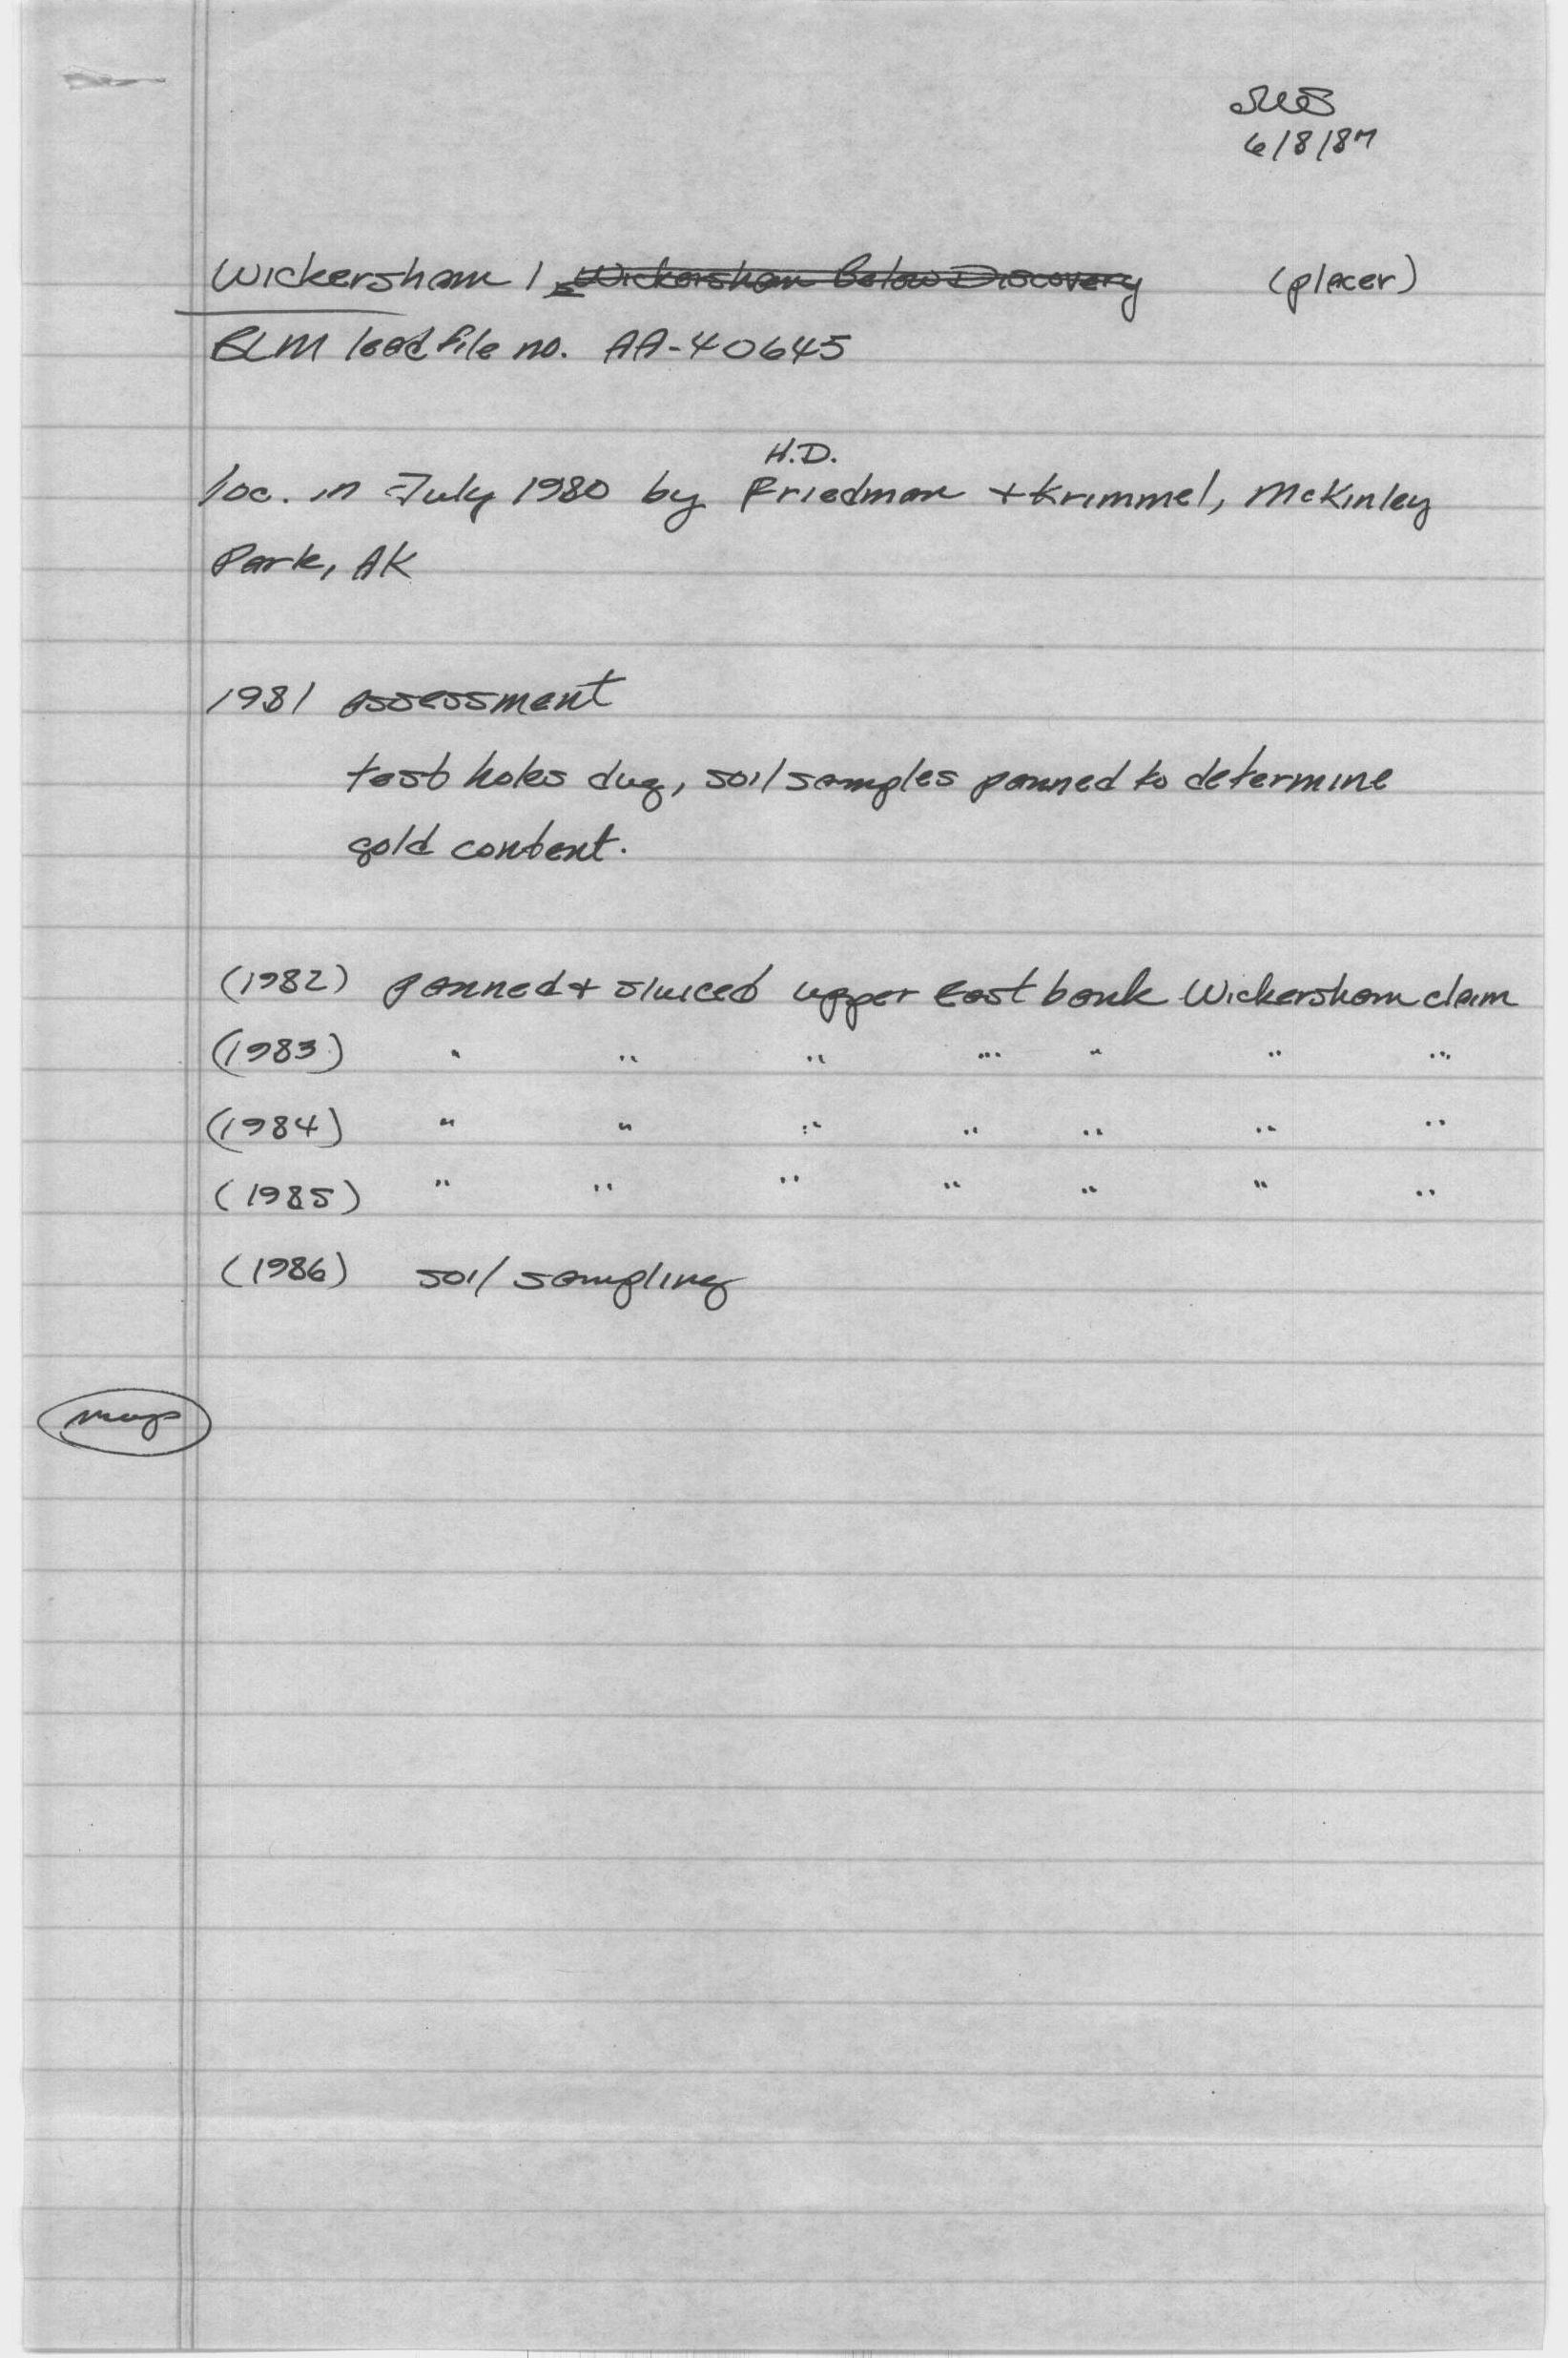 6/8/87
Wickersham 1 Wickersham Below Discovery (placer)
BLM lead file no. AA-40645
H.D.
loc. in July 1980 by Friedman + Krimmel, McKinley
Park, AK
1981 assessment
test holes dug, soil samples panned to determine
gold content.
(1982) panned + sluiced upper east bank Wickersham claim
(1983) " " " " " " "
(1984) " " " " " " "
(1985) " " " " " " "
(1986) soil sampling
map